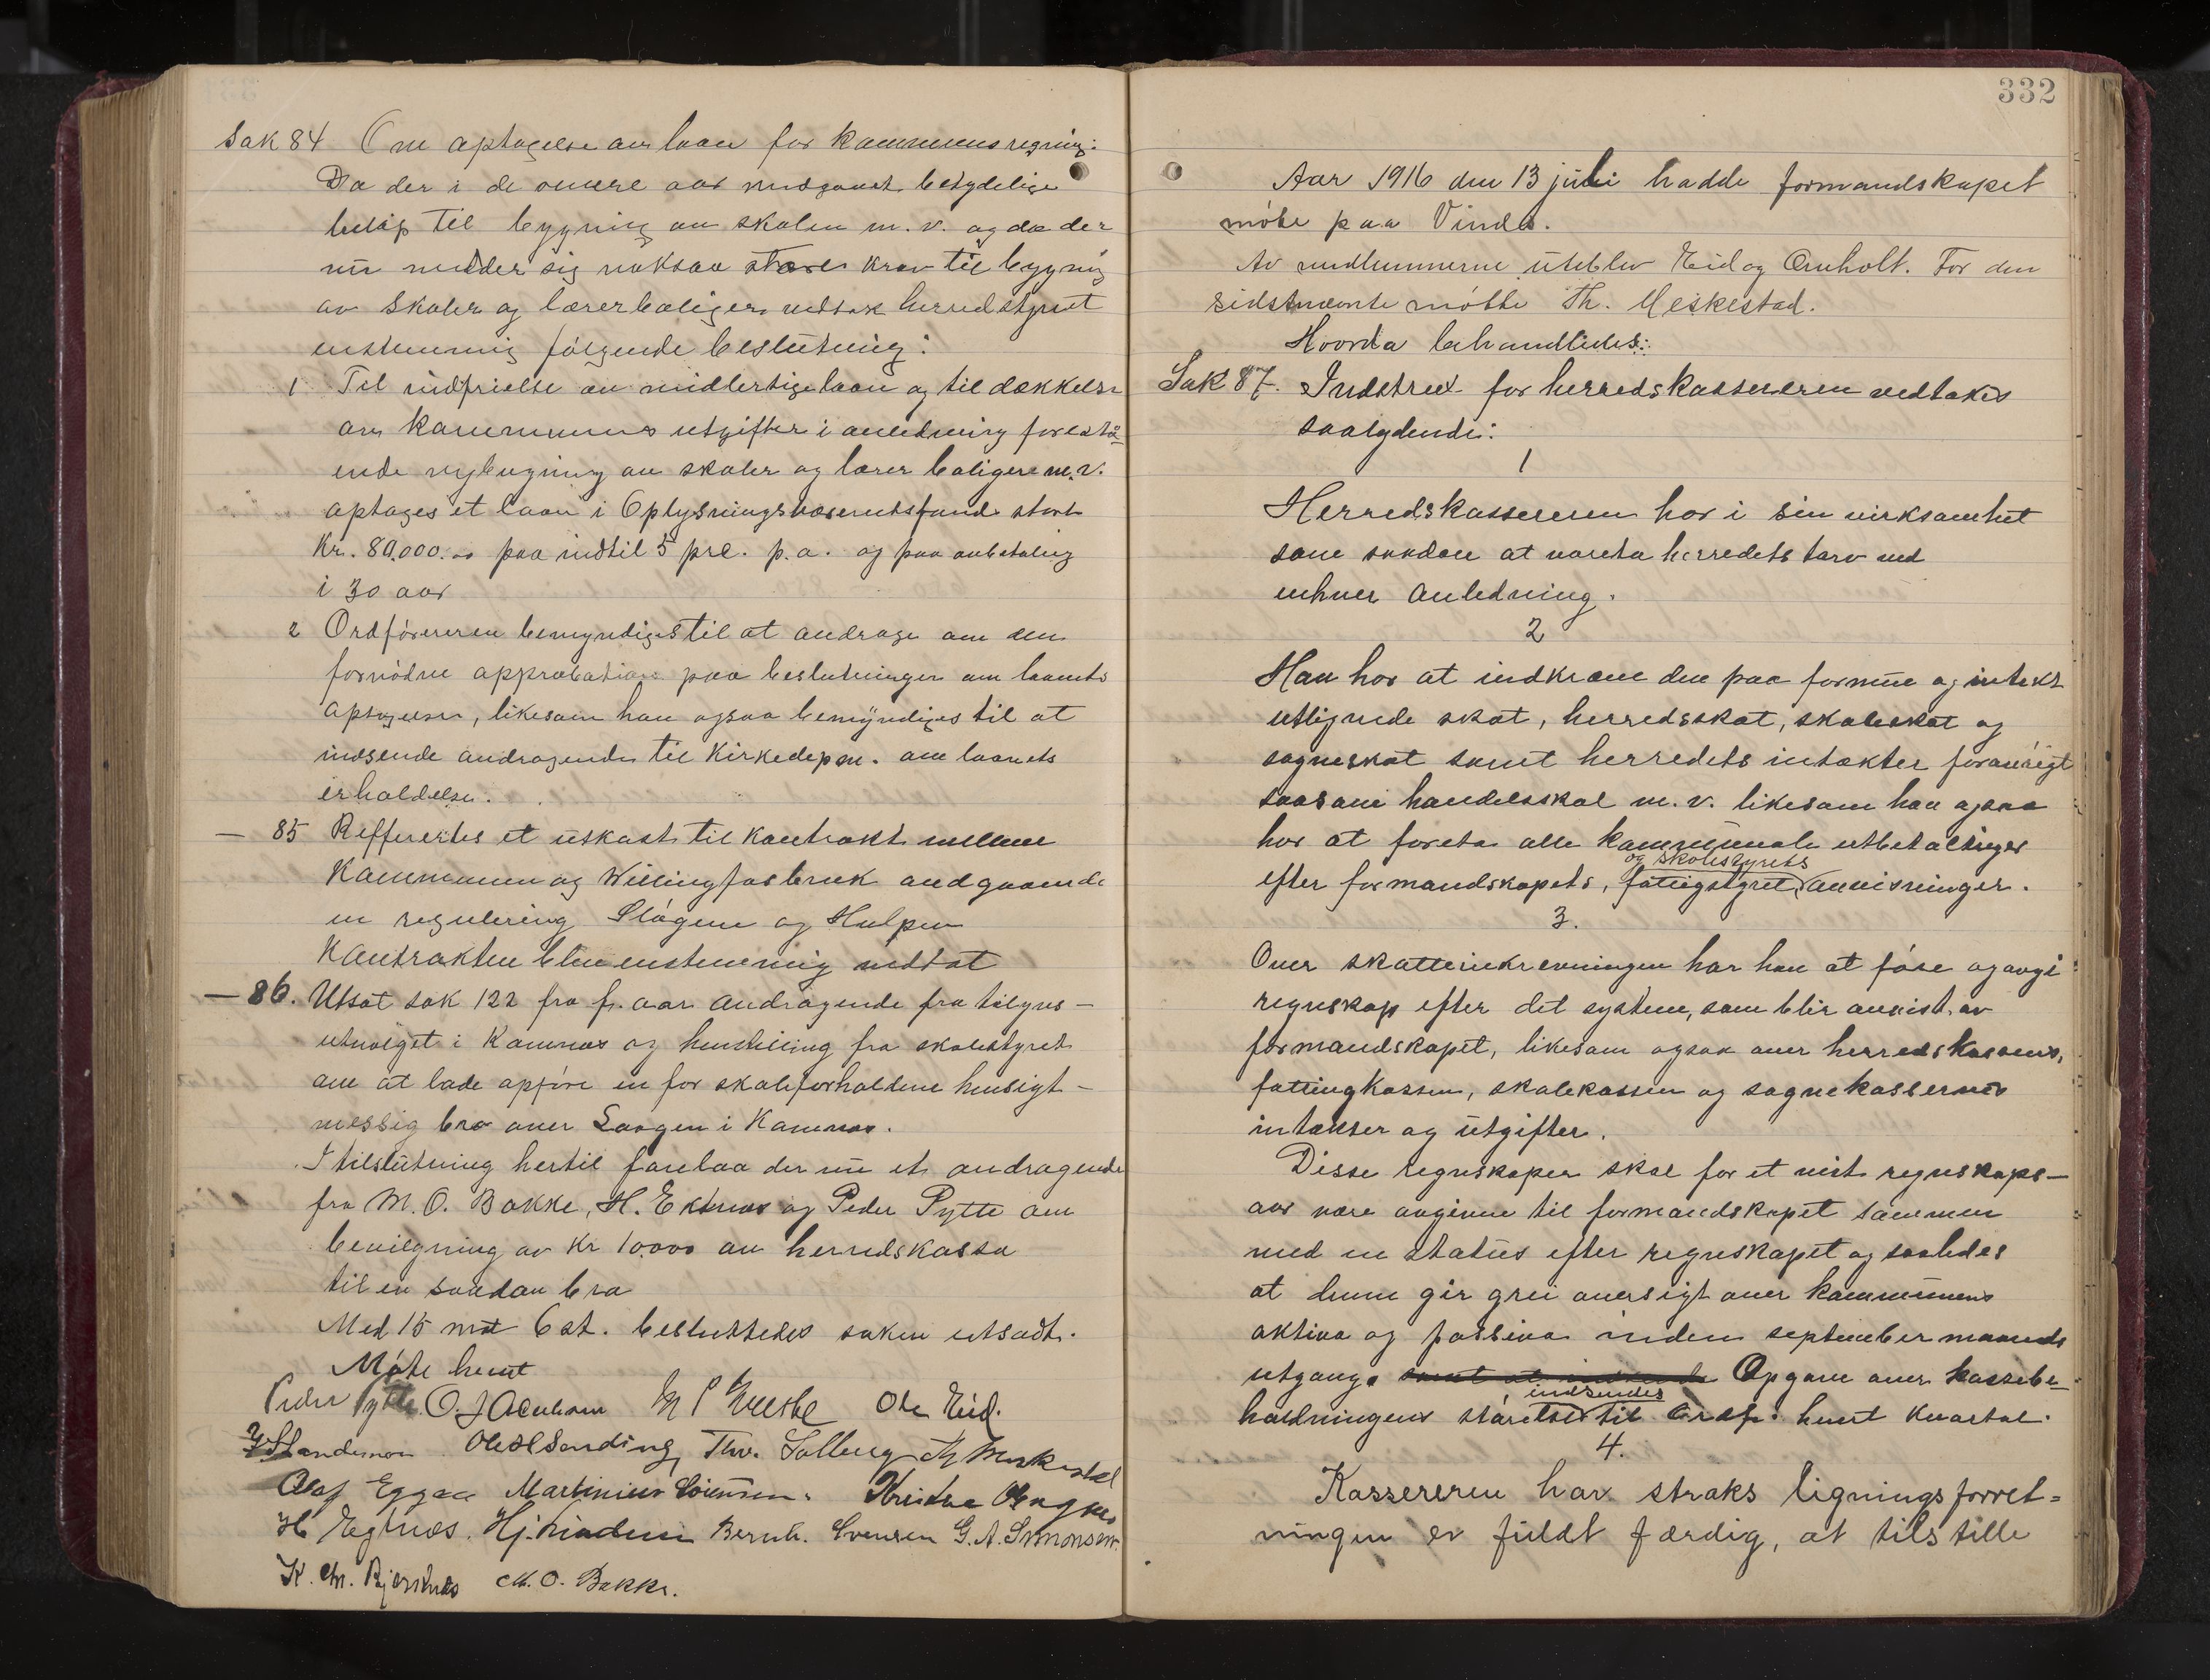 Sak 84 Om optagelse av laan for kommunens regning:
Da der i de senere aar medgaat betydelige
beløp til bygning av skoler m. v. og da der
nu melder sig ogsaa store krav til bygning
av skoler og lærerboliger vedtok herredstyret
enstemmig følgende beslutning:
1 Til indfrielse av midlertige laan og til dækkelse
av kommunens utgifter i anledning forestå-
ende nybygning av skoler og lærerboligere m.v.
optages et laan i Oplysningsvæsenets fond stort
Kr. 80,000.00 paa indtil 5 pct. p.a. og paa avbetaling
i 30 aar
2 Ordføreren bemyndiges til at andrage om den
fornødne approbation paa beslutningen om laanets
optagelse, likesom han ogsaa bemyndiges til at
indsende andragende til Kirkedepm. om laanets
erholdelse.
— 85 Refferertes et utkast til kontrakt mellem
Kommunen og Willingfos bruk andgaaende
en regulering Slågene og Hulpen
Kontrakten blev enstemmig vedtat
— 86. Utsat sak 122 fra f. aar andragende fra tilsyns-
utvalget i Komnæs og henstilling fra skolestyret
om at lade opføre en for skoleforholdene hensigt-
messig bro over Laagen i Komnæs.
I tilslutning hertil forelaa der nu et andragende
fra M. O. Bakke, H. Eknæs og Peder Pytte om
bevilgning av Kr 10000 av herredskassa
til en saadan bro
Med 15 mot 6 st. besluttedes saken utsadt.
Møte hevet
Peder Pytte. O. J Acubson Ole Eid.
Ole H Sanding, Thv. Solberg Th Meskestad
Olaf Eggen Martinius Sørensen. Kristen
H Egtnæs. Hj. Bernh. Svensen G. A. Simonsen.
K. Chr. Bjerknæs M. O. Bakke.
332
Aar 1916 den 13 juli hadde formandskapet
møte paa Vinda.
Av medlemmerne uteblev Eid og Omholt. For den
sidstnævnte møtte Th. Meskestad.
Hvorda behandlides:
Sak 87. Indstrux for herredskassereren vedtakes
saalydende:
1
Herredskassereren har i sin virksomhet
som saadan at vareta herredets tarv ved
enhver anledning.
2
Han har at indkræve den paa formue og intekt
utlignede skat, herredsskat, skoleskat og
sogneskat samt herredets intækter forøvrigt
saasom handelsskat m. v. likesom han ogsaa
har at foreta alle kommunale utbetalinger
og skolestyrets
efter formandskapets, fattigstyret, anvisninger.
3.
Over skatteinkrevningen har han at føre og avgi
regnskap efter det system, som blir anvist av
formandskapet, likesom ogsaa over herredskassens,
fattingkassen, skolekassen og sognekassernes
intækter og utgifter.
Disse regnskaper skal for et vist regnskaps-
aar være avgivne til formandskapet sammen
med en status efter regnskapet og saaledes
at denne gir grei oversigt over kommunens
aktiva og passiva inden september maaneds
utgang. samt at indsende Opgave over kassebe-
indsendes
holdningens størelse til Ordf. hvert kvartal.
4.
Kassereren har straks ligningsforret-
ningen er fuldt færdig, at tilstille